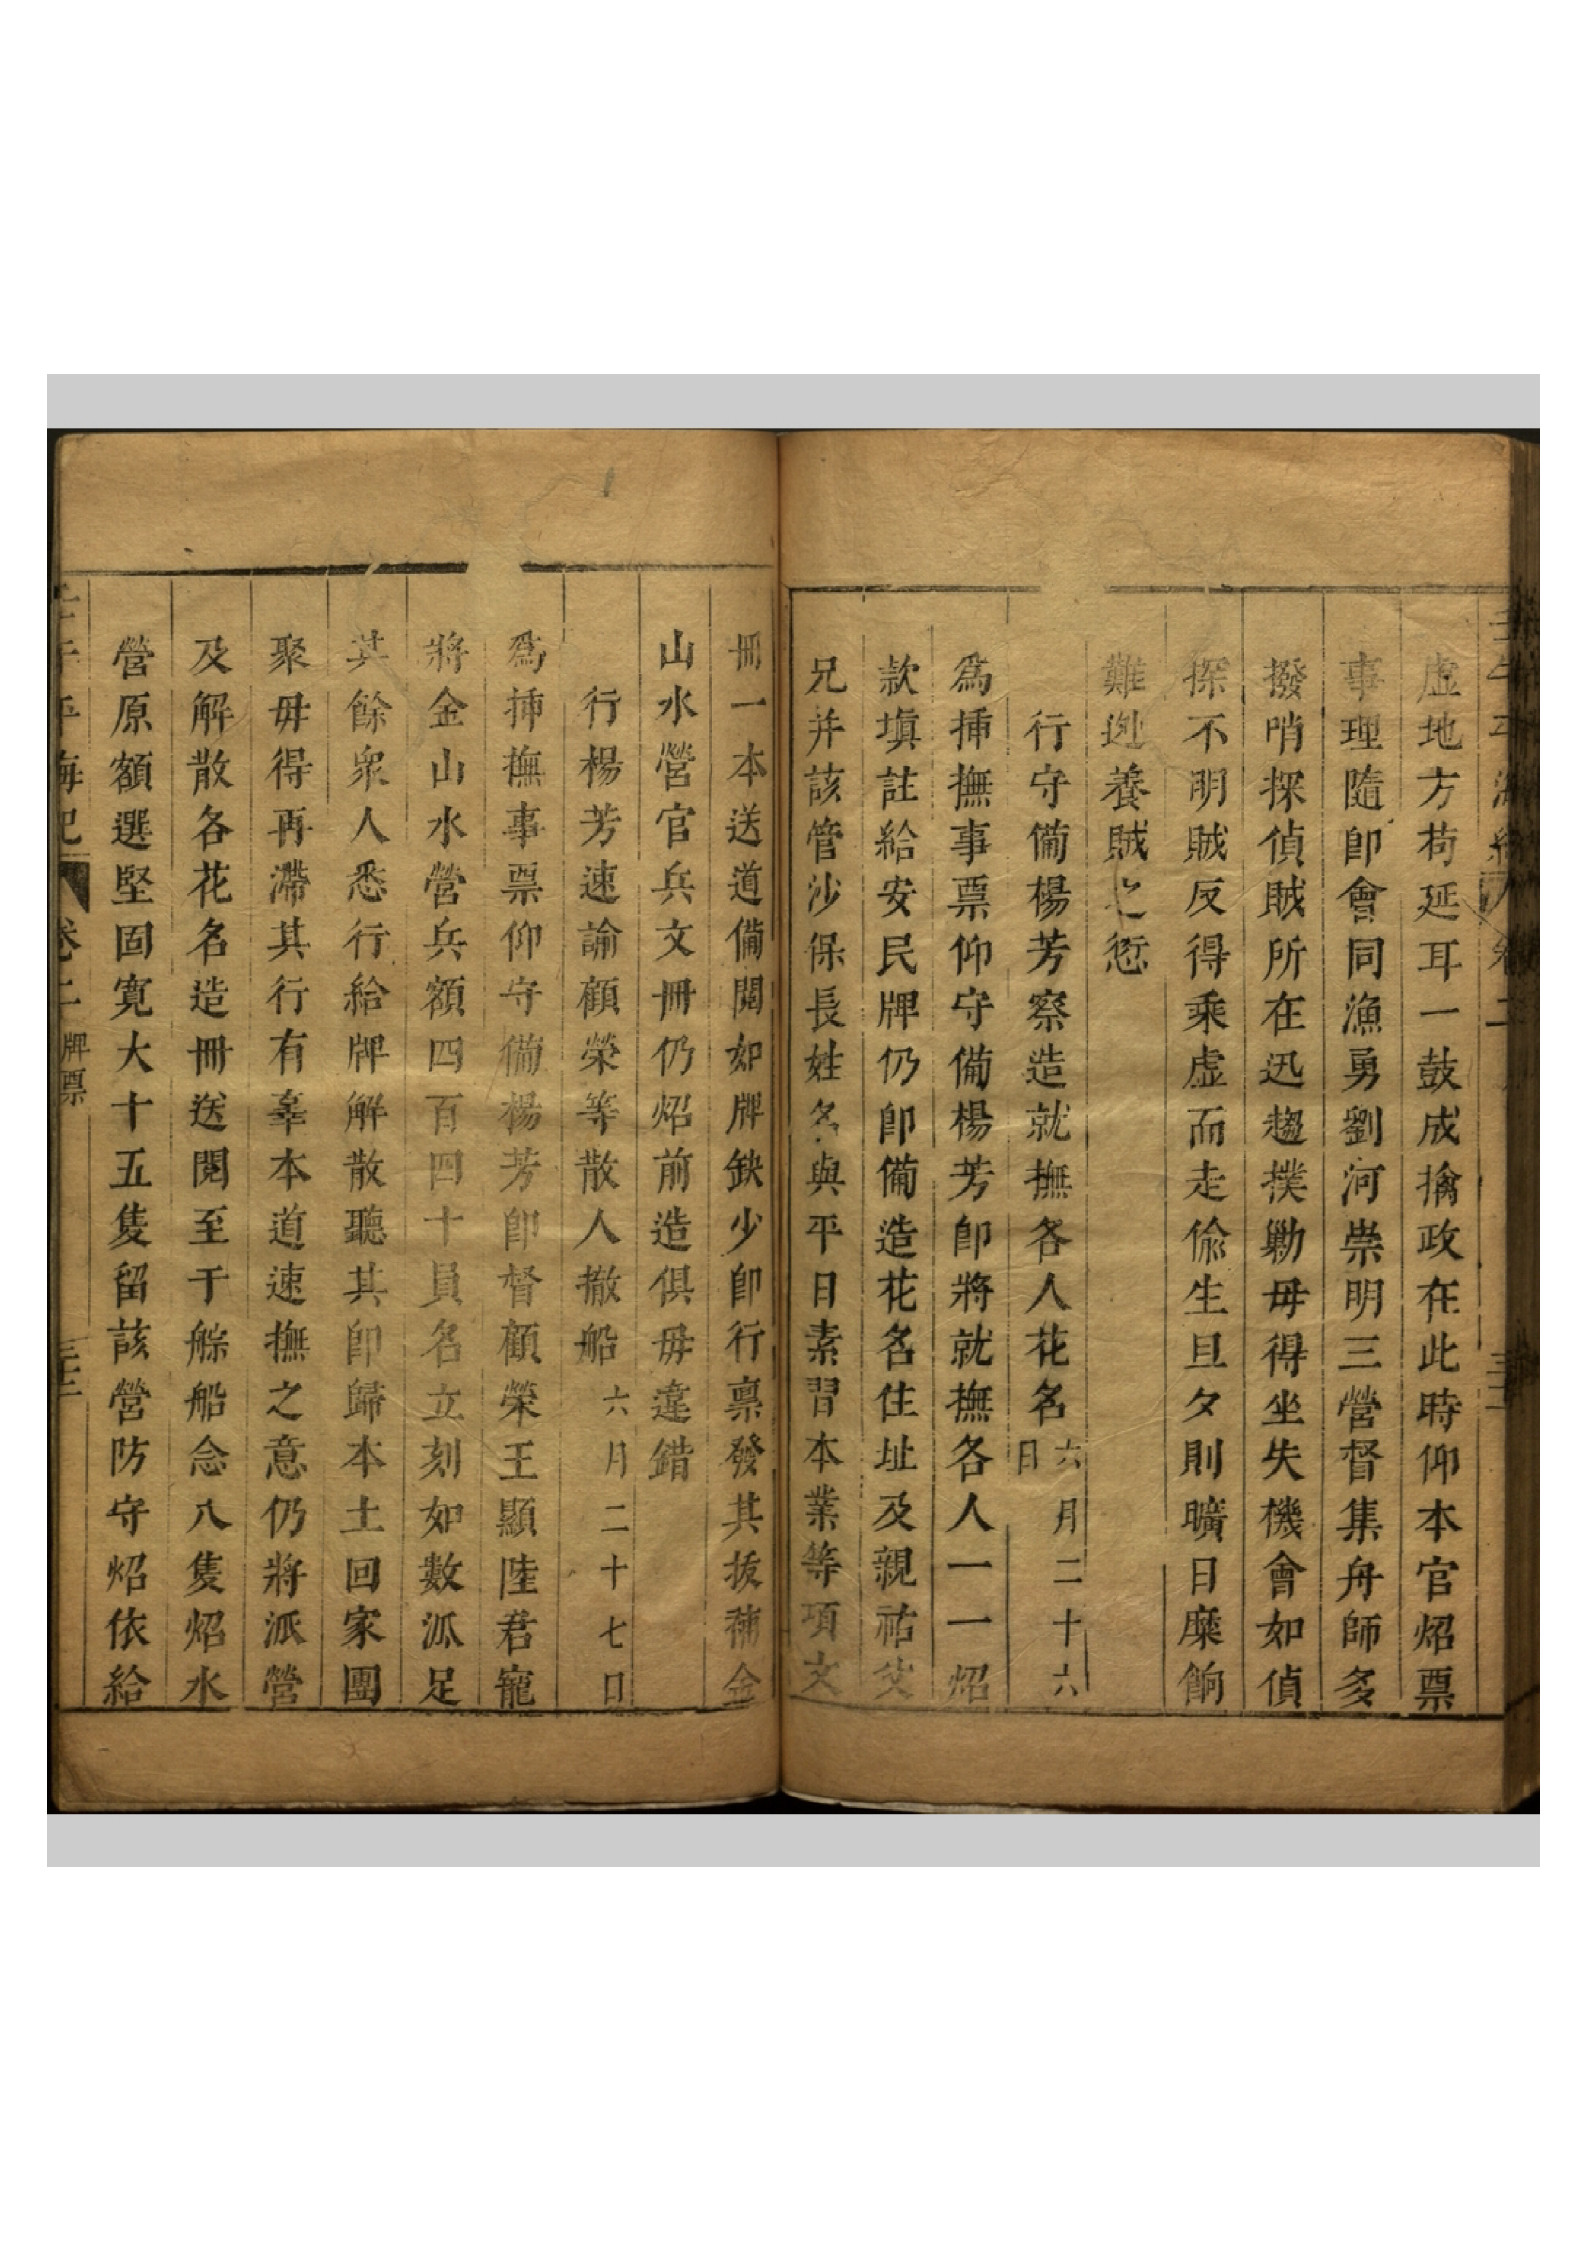 虛地方苟延耳一鼓成擒政在此時仰本官炤票
事理隨卽會同漁勇劉河崇明三營督集舟師多
撥哨探偵賊所在迅趨撲勦毋得坐失機會如偵
探不明賊反得乘虛而走偷生旦夕則曠日糜餉
難逃養賊之愆
行守備楊芳察造就撫各人花名六月二十六日
爲揷撫事票仰守備楊芳卽將就撫各人一一炤
款塡註給安民牌仍卽備造花名住址及親祐父
兄并該管沙保長姓名與平日素習本業等項文
冊一本送道備閱如牌缺少卽行稟發其拔補金
山水營官兵文冊仍炤前造俱毋違錯
行楊芳速諭顧榮等散人撤船六月二十七日
爲揷撫事票仰守備楊芳卽督顧榮王顯陸君寵
將金山水營兵額四百四十員名立刻如數派足
其餘衆人悉行給牌解散聽其卽歸本土回家團
聚毋得再滯其行有辜本道速撫之意仍將派營
及解散各花名造冊送閱至于艅船念八隻炤水
營原額選堅固寬大十五隻留該營防守炤依給
壬午平海紀 卷二 牌票